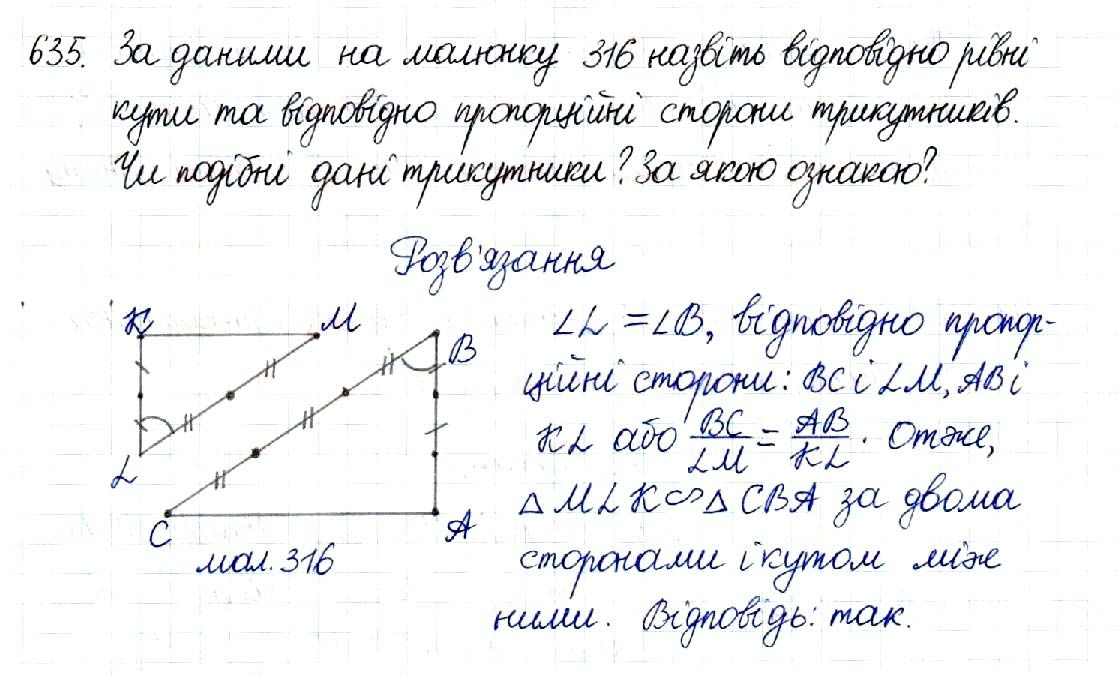 635. За даними на малюнку 316 назвіть відповідно рівні
кути та відповідно пропорційні сторони трикутників.
Чи подібні дані трикутники? За якою ознакою?
Розв'язання
K M B
L C A
мал. 316
∠L = ∠B, відповідно пропор-
ційні сторони: BC і LM, AB і
KL або BC/LM = AB/KL. Отже,
△MLK ∽ △CBA за двома
сторонами і кутом між
ними. Відповідь: так.